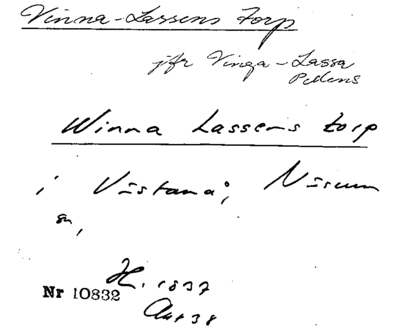 Vinna-Lassens torp
jfr Vinga-Lassa
Pellens
Winna Lassens torp
i Västanå, Nisum
sn,
H. 1837
Nr 10832